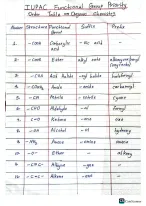 IUPAC Functional Group Priority
Order Table in Organic Chemistry
Structure Functional Group Suffix Prefix
1. -COOH Carboxylic acid -oic acid -
2. -COOR Ester alkyl oate alkoxycarbonyl
3. -COX Acid halide -oyl halide halo
4. -CONH₂ Amide -amide carbamoyl
5. -CN Nitrile -nitrile cyano
6. -CHO Aldehyde -al formyl
7. -CO- Ketone -one oxo
8. -OH Alcohol -ol hydroxy
9. -NH₂ Amine -amine amino
10. -O- Ether - alkoxy
11. -C≡C- Alkyne -yne -
12. -C=C- Alkene -ene -